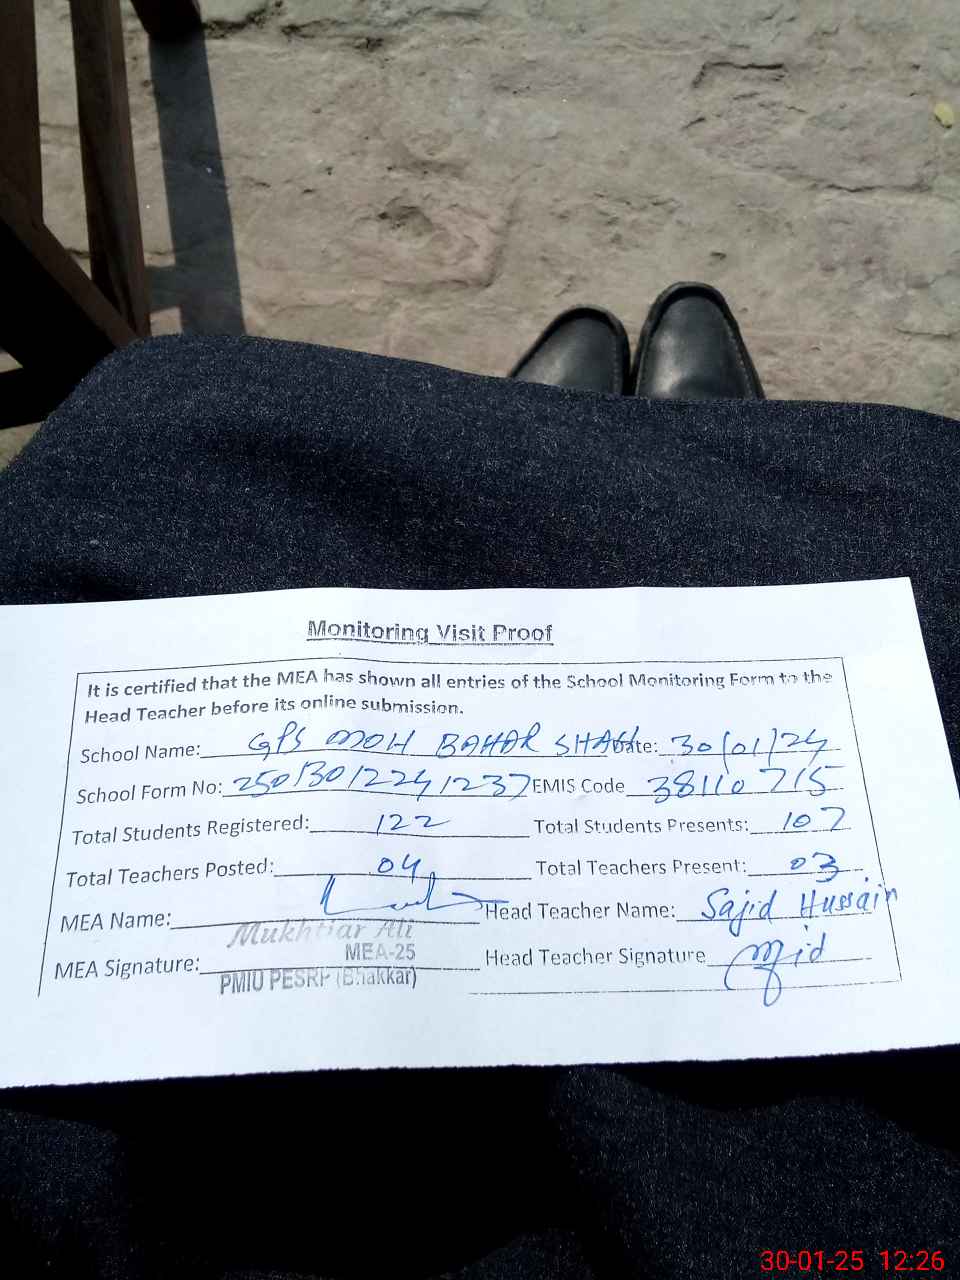 Monitoring Visit Proof
It is certified that the MEA has shown all entries of the School Monitoring Form to the
Head Teacher before its online submission.
School Name: GPS MOH BAHAR SHAH Date: 30/01/24
School Form No: 25013012241237 EMIS Code 38110715
Total Students Registered: 122 Total Students Presents: 107
Total Teachers Posted: 04 Total Teachers Present: 03
MEA Name: Head Teacher Name: Sajid Hussain
Mukhtiar Ali
MEA-25
MEA Signature: Head Teacher Signature
PMIU PESRP (Bhakkar)
30-01-25 12:26